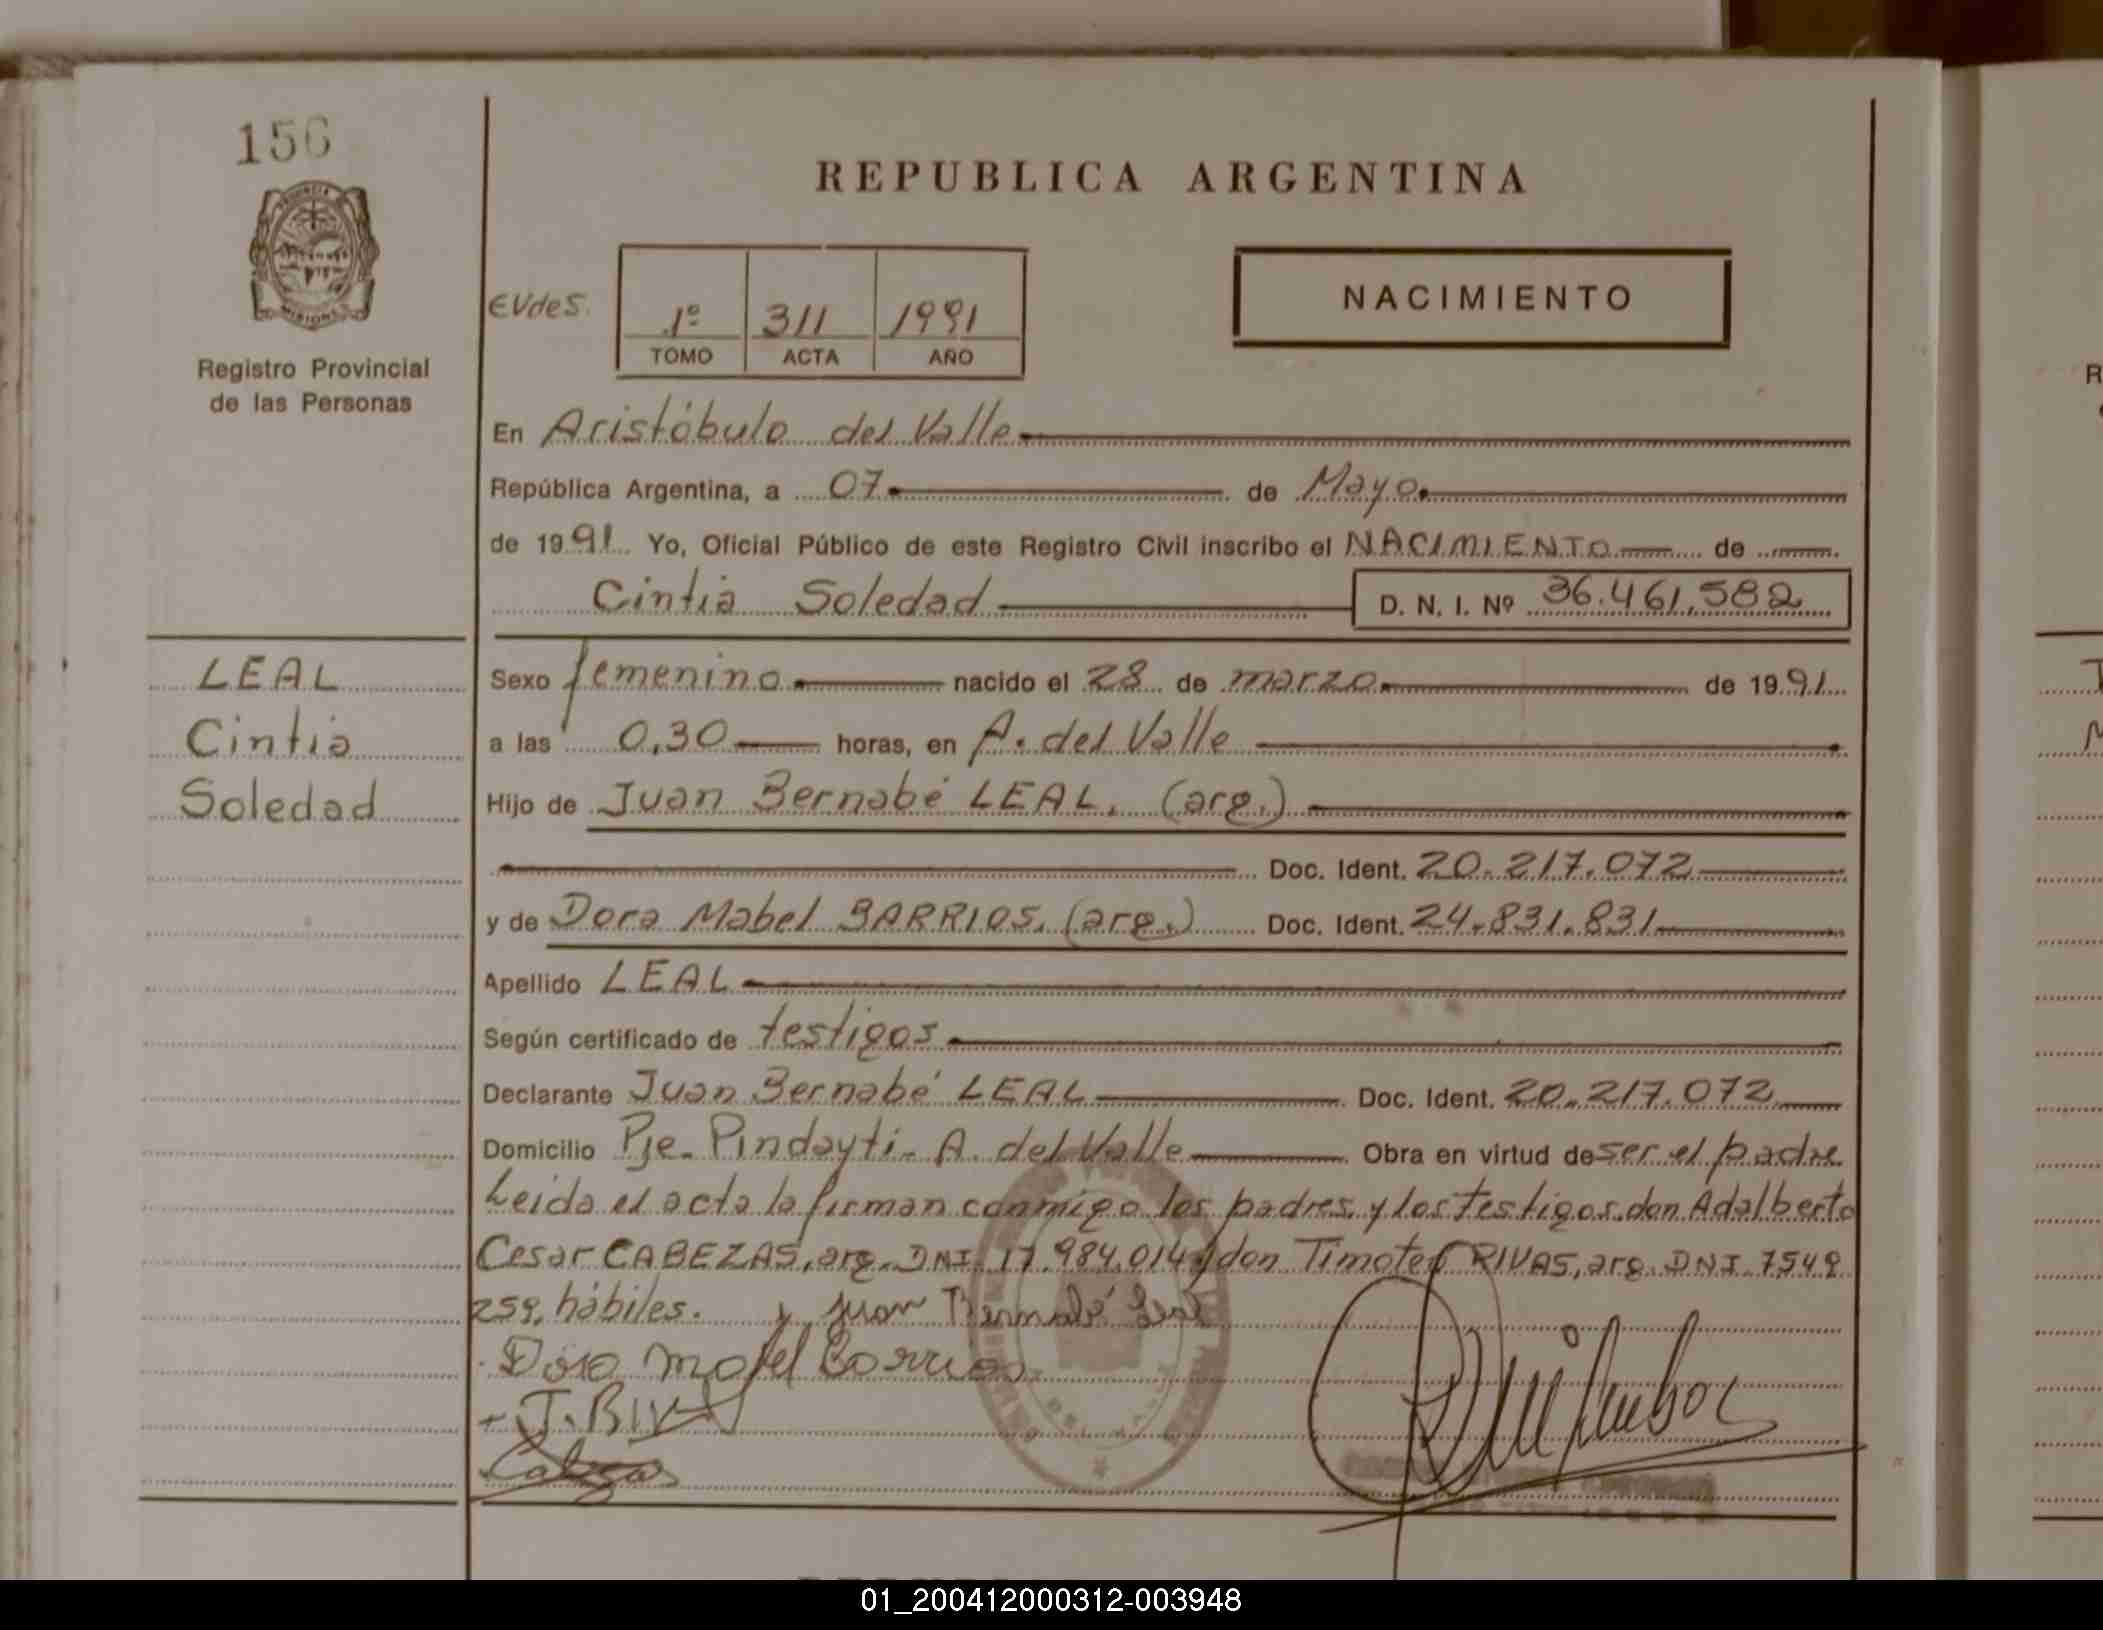 156
REPUBLICA ARGENTINA
EVdes.
1º 311 1991
TOMO ACTA AÑO
NACIMIENTO
Registro Provincial
de las Personas
En Aristóbulo del Valle
República Argentina, a 07 de Mayo
de 1991 Yo, Oficial Público de este Registro Civil inscribo el NACIMIENTO de
Cintia Soledad D. N. I. Nº 36.461.582
LEAL
Cintia
Soledad
Sexo femenino nacido el 28 de marzo de 1991
a las 0,30 horas, en A. del Valle
Hijo de Juan Bernabé LEAL. (arg.)
Doc. Ident. 20.217.072
y de Dora Mabel BARRIOS. (arg.) Doc. Ident. 24.831.831
Apellido LEAL
Según certificado de testigos
Declarante Juan Bernabé LEAL Doc. Ident. 20.217.072
Domicilio Pje. Pindayti- A. del Valle Obra en virtud de ser el padre
Leida el acta la firman conmigo los padres y los testigos don Adalberto
Cesar CABEZAS, arg. DNI. 17.984.014 y don Timoteo RIVAS, arg. DNI. 7549
259, hábiles. Juan Bernabé Leal
Dora Mabel Barrios
01_200412000312-003948